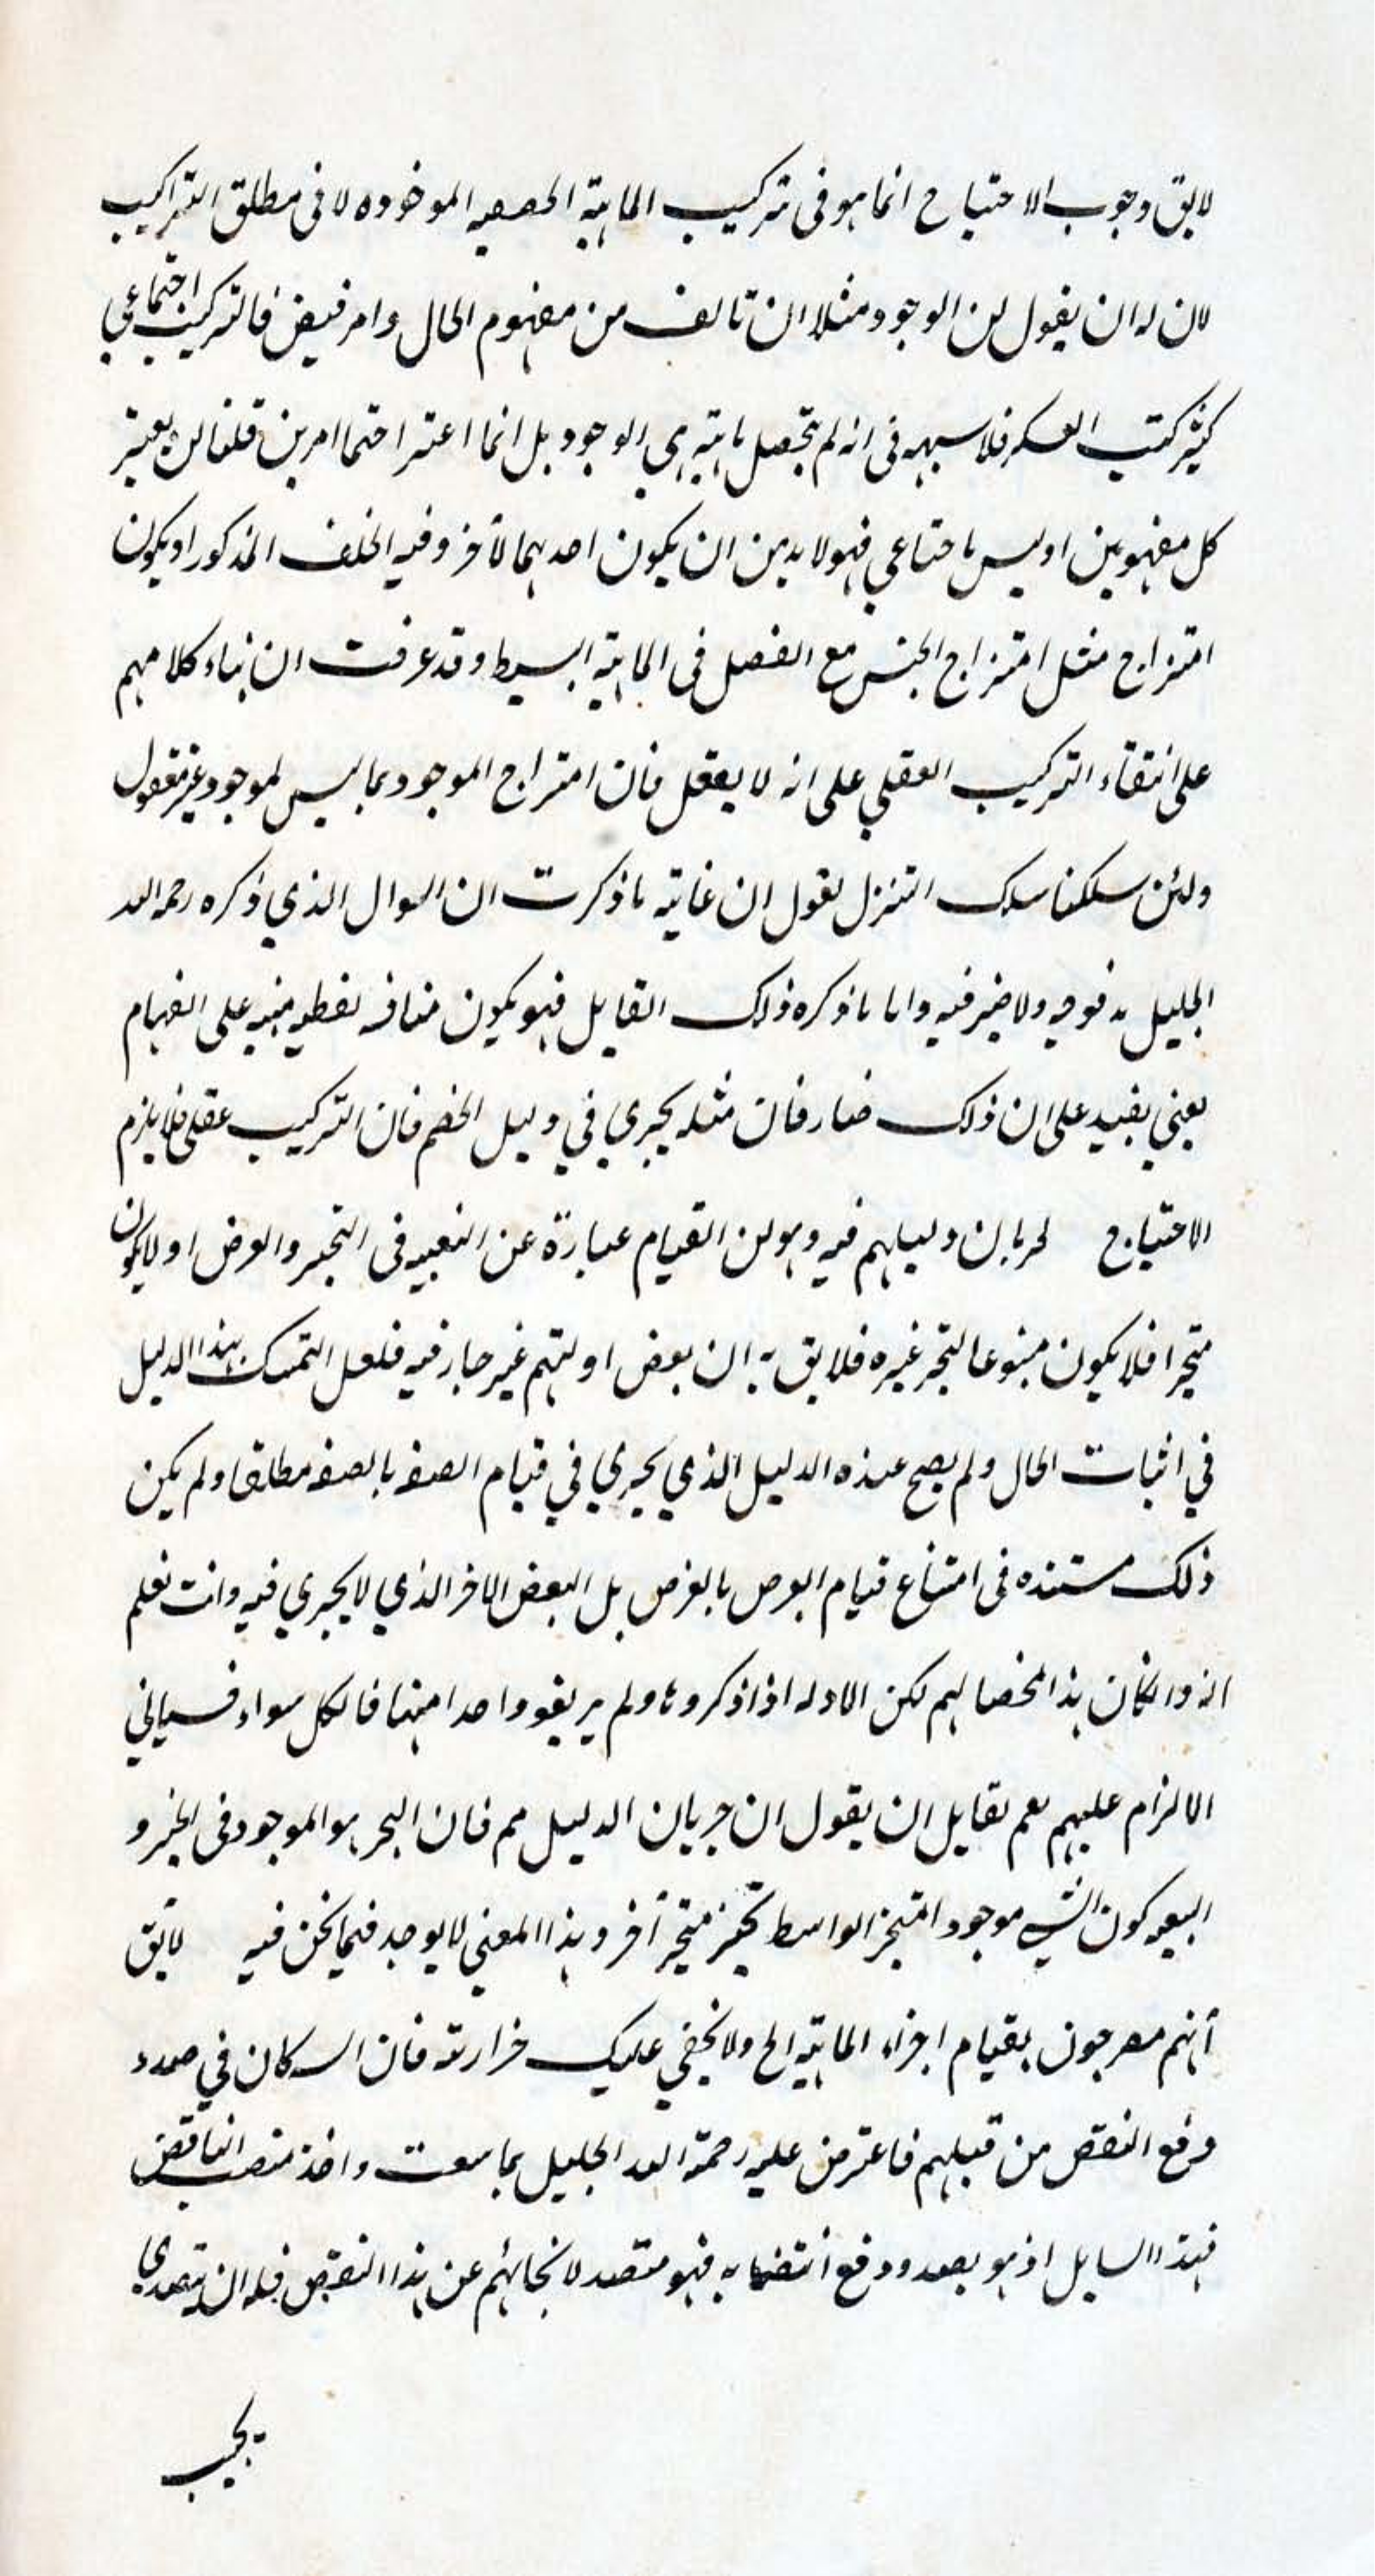 لايق وجوب الاحتياج انما هو فى تركيب الماهية الموخوده لا فى مطلق التراكيب
لان له ان يقول ان الوجود مثلا ان تالف من مفهوم الحال وامر فيض فالتركيب اجتماعي
كتركيب العسكر فلا فى انه لم تحصل ماهية هي الوجود بل انما اعتبر امرين قلنا ان يعتبر
كل مفهومين او ليس باجتماعي فهو لا بد من ان يكون احدهما لآخر وفيه الخلف المذكور او يكون
امتزاج مثل امتزاج الجنس مع الفصل فى الماهية البسيط وقد عرفت ان بناء كلامهم
على انتقاء التركيب العقلي على انه لا يعقل فان امتزاج الموجود بما ليس لموجود غير معقول
ولئن سلكنا سلك التنزل نقول ان غاية ما ذكرت ان السوال الذي ذكره رحمه الله
الجليل مدفوع ولا ضير فيه واما ما ذكره ذلك القايل فهو يكون لفظيه على
يعني يفيد على ان ذلك ضار فان مثله يجري في دليل الخصم فان التركيب عقلي فلا يلزم
الاحتياج لجريان دليلهم فيه وهو ان القيام عبارة عن التعبيه فى التحيز والعرض او لا يكون
متحيزا فلا يكون متبوعا لتحيز غيره فلا يق به ان بعض ادلتهم غير جار فيه فلعل التمسك بهذا الدليل
في اثبات الحال ولم يصح عنده الدليل الذي يجري في قيام الصفه بالصفه مطلقا ولم يكن
ذلك مستنده فى امتناع قيام العرض بالعرض بل البعض الاخر الذي لا يجري فيه وانت تعلم
انه وان كان هذا مخصا لهم لكن الادله اذا ذكروها ولم يريفوا واحدا منها فالكل سواء
الالزام عليهم نعم لقايل ان يقول ان جريان الدليل مم فان التحيز هو الموجود فى الحيز و
كون الشي موجودا لتحيز الواسط تحيز متحيز آخر وهذا المعني لا يوجد فيما نحن فيه لا يق
أنهم مصرحون بقيام اجزاء الماهية الخ ولا يخفي عليك حزازته فان كان في صدد
دفع النقض من قبلهم فاعترض عليه رحمة الله الجليل بما سمعت واخذ منصب الناقض
فهذا السايل اذ هو بصدد دفع انتقضا به فهو متصد لانجائهم عن هذا النقض فله ان يتصدي
يجيب